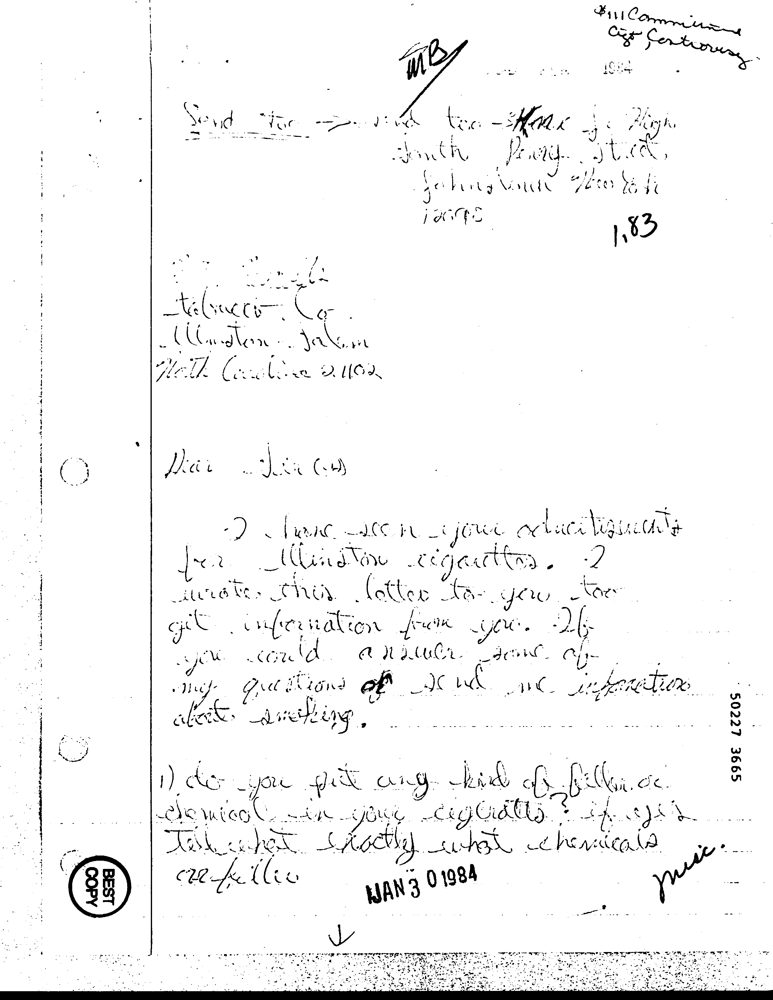 Cigt Controversy
MB
1984
Send too → send too -
Perry Street,
Johnstown New York
1,83
tobacco Co.
Winston - Salem
North Carolina 27102
Dear Sir (s)
I have seen your advertisements
for Winston cigarettes. I
wrote this letter to you too
get information from you. If
you could answer some of
my questions or send me information
about smoking.
1) do you put any kind of filler or
chemical in your cigerattes? if yes
Tell what exactly what chemicals
or filler
BEST COPY
JAN 30 1984
misc.
↓
50227 3665